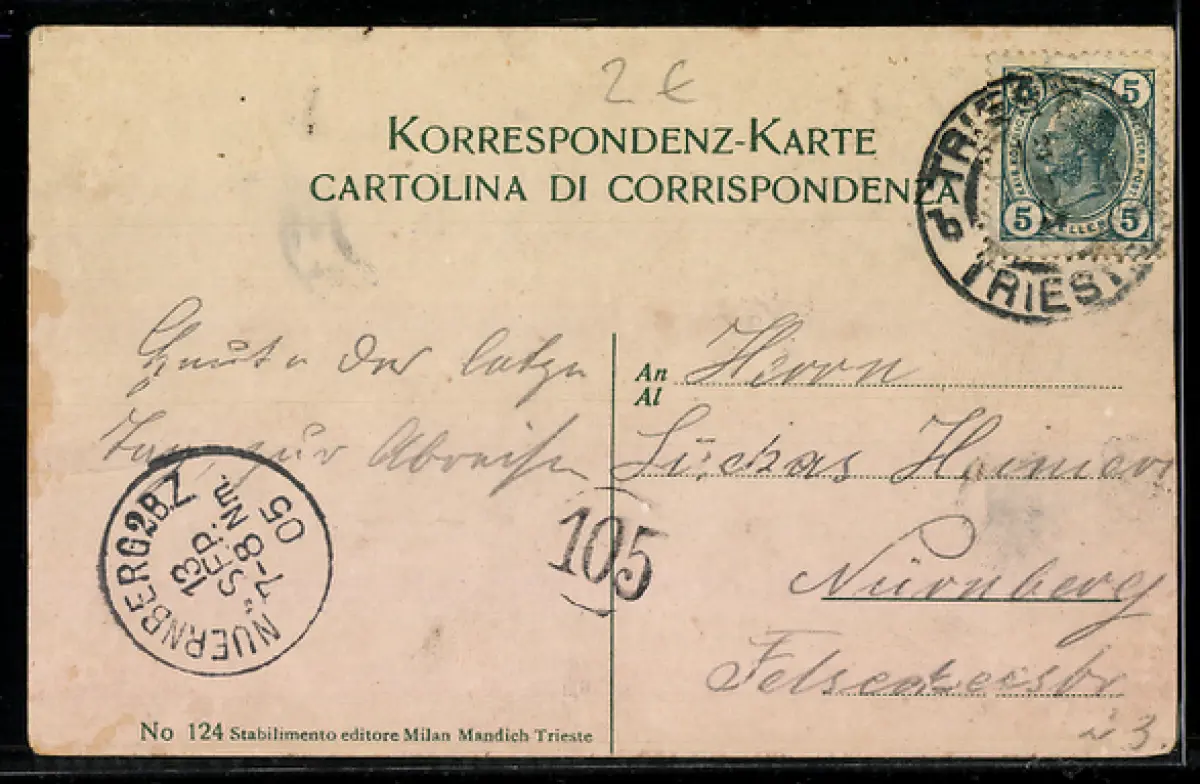 2 €
KORRESPONDENZ-KARTE
CARTOLINA DI CORRISPONDENZA
5 5
5 5
TRIEST
TRIEST
An
Al
Herrn
Nürnberg
23
der letzte
Tag zur Abreise
NUERNBERG 2 B.Z
13 SEP.
7-8 Nm.
05
105
No 124 Stabilimento editore Milan Mandich Trieste